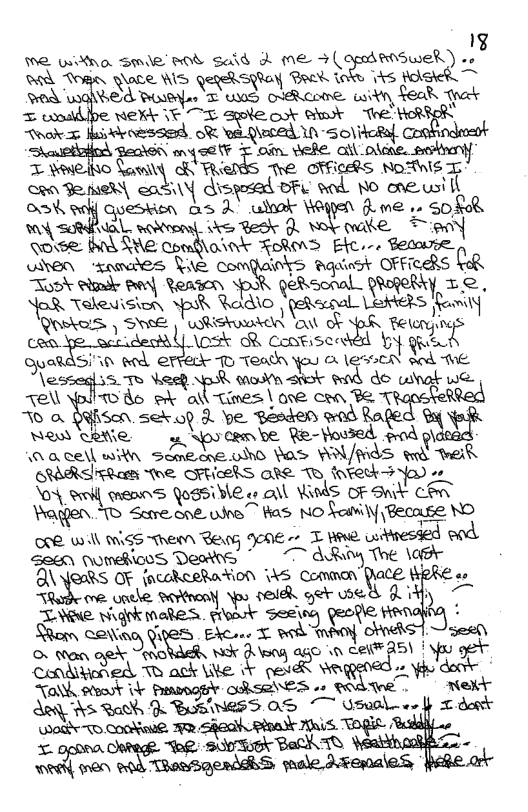 18
me with a smile And said 2 me → (good Answer) ..
And Then place His peperspray Back into its Holster
And walked Away.. I was overcome with fear That
I would be Next if I spoke out About The "HORROR"
That I wittnessed or be placed in solitary Confindment
Beaten myself I am Here all alone Anthony
I HAVE NO family or Friends The officers No This I
can Be very easily disposed OF! And No one will
ask Any question as 2 what Happen 2 me .. so for
my survival Anthony its Best 2 Not make Any
noise And file complaint forms Etc... Because
when Inmates file complaints Against OFFicers for
Just About Any Reason your personal property I.e.
your Television your Radio, personal Letters, family
photo's, shoe, wristwatch all of your Belongings
can be accidently Lost or confiscrited by prison
guards in And effect To Teach you a lesson And The
lesson is To Keep your mouth shot And do what we
Tell you To do At all Times! one can Be Transferred
To a prison set up 2 be Beaten And Raped By your
New cellie .. you can be Re-Housed And placed
in a cell with someone who Has HIV/Aids And Their
orders From The officers are To infect → you ..
by Any means possible .. all Kinds of shit can
Happen To some one who Has No family, Because NO
one will miss Them Being gone .. I Have witnessed And
seen numerious Deaths during The last
21 years of incarceration its common place Here ..
Trust me uncle Anthony you never get used 2 it;
I Have Nightmares About seeing people Hanging :
from ceiling pipes Etc... I And many others seen
a man get morder Not 2 long ago in cell #251 you get
conditioned To act Like it never Happened .. you dont
Talk About it Amongst ourselves .. And The Next
day its Back 2 Business as usual .... I dont
want To continue To speak About This Topic
I gonna change The subJust Back To Healthcare ...
many men And Transgenders male 2 Females Here at